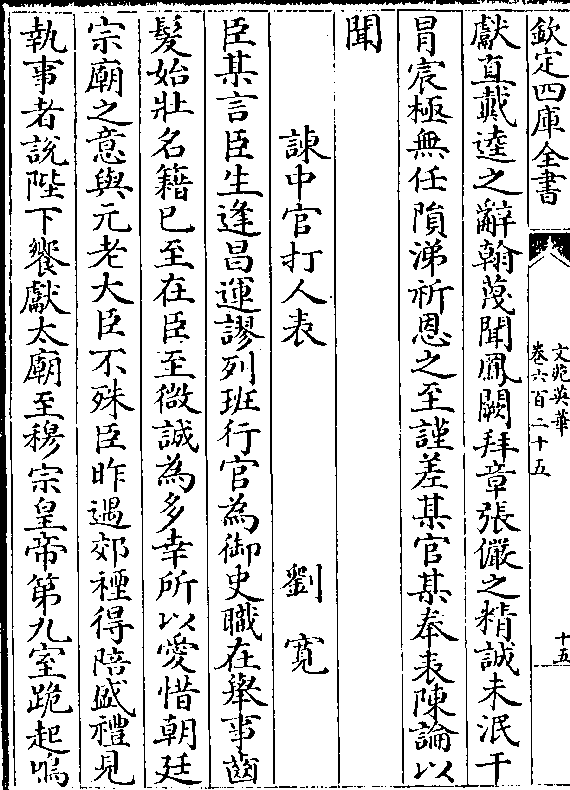 欽定四庫全書
文苑英華
卷六百二十五
十五
獻直戴逵之辭翰蔑聞鳳闕拜章張儼之精誠未泯干
冒宸極無任隕涕祈恩之至謹差某官某奉表陳論以
聞
諫中官打人表 劉寛
臣某言臣生逢昌運謬列班行官為御史職在舉事齒
髮始壯名籍已至在臣至微誠為多幸所以愛惜朝廷
宗廟之意與元老大臣不殊臣昨遇郊禋得陪盛禮見
執事者說陛下饗獻太廟至穆宗皇帝第九室跪起嗚